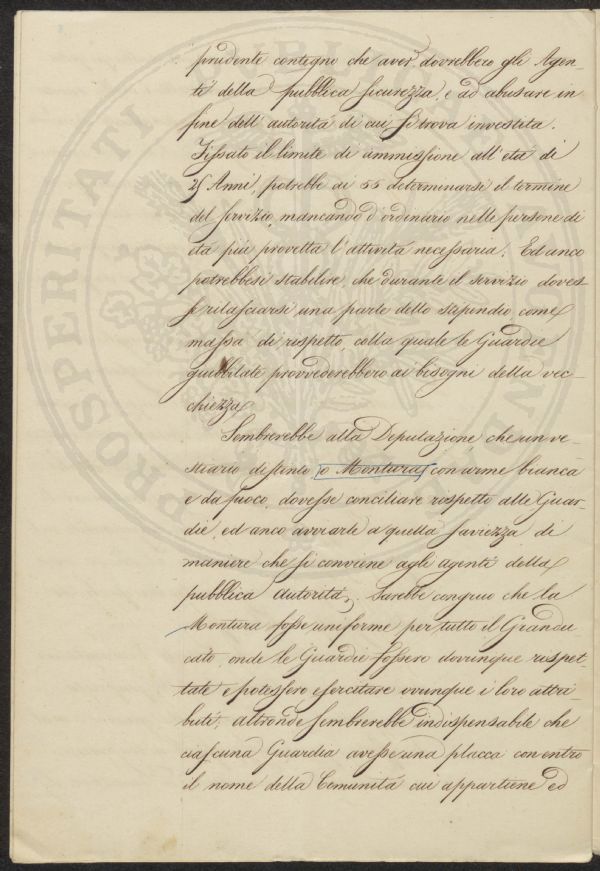 prudente contegno che aver dovrebbero gli Agen-
ti della pubblica sicurezza, e ad abusare in
fine dell'autorità di cui si trova investita.
Fissato il limite di ammissione all'età di
25 Anni, potrebbe ai 55 determinarsi il termine
del servizio, mancando d'ordinario nelle persone di
età più provetta l'attività necessaria. Ed anco
potrebbesi stabilire, che durante il servizio doves-
se rilasciarsi una parte dello stipendio come
massa di rispetto, colla quale le Guardie
giubbilate provvederebbero ai bisogni della vec-
chiezza.
Sembrerebbe alla Deputazione, che un ve-
stiario distinto, o Montura, con arme bianca
e da fuoco, dovesse conciliare rispetto alle Guar-
die, ed anco avviarle a quella saviezza di
maniere che si conviene agli agenti della
pubblica autorità. Sarebbe congruo che la
Montura fosse uniforme per tutto il Grandu-
cato, onde le Guardie fossero dovunque rispet-
tate e potessero esercitare ovunque i loro attri-
buti; altronde sembrerebbe indispensabile che
ciascuna Guardia avesse una placca con entro
il nome della Comunità cui appartiene ed
PROSPERITATI